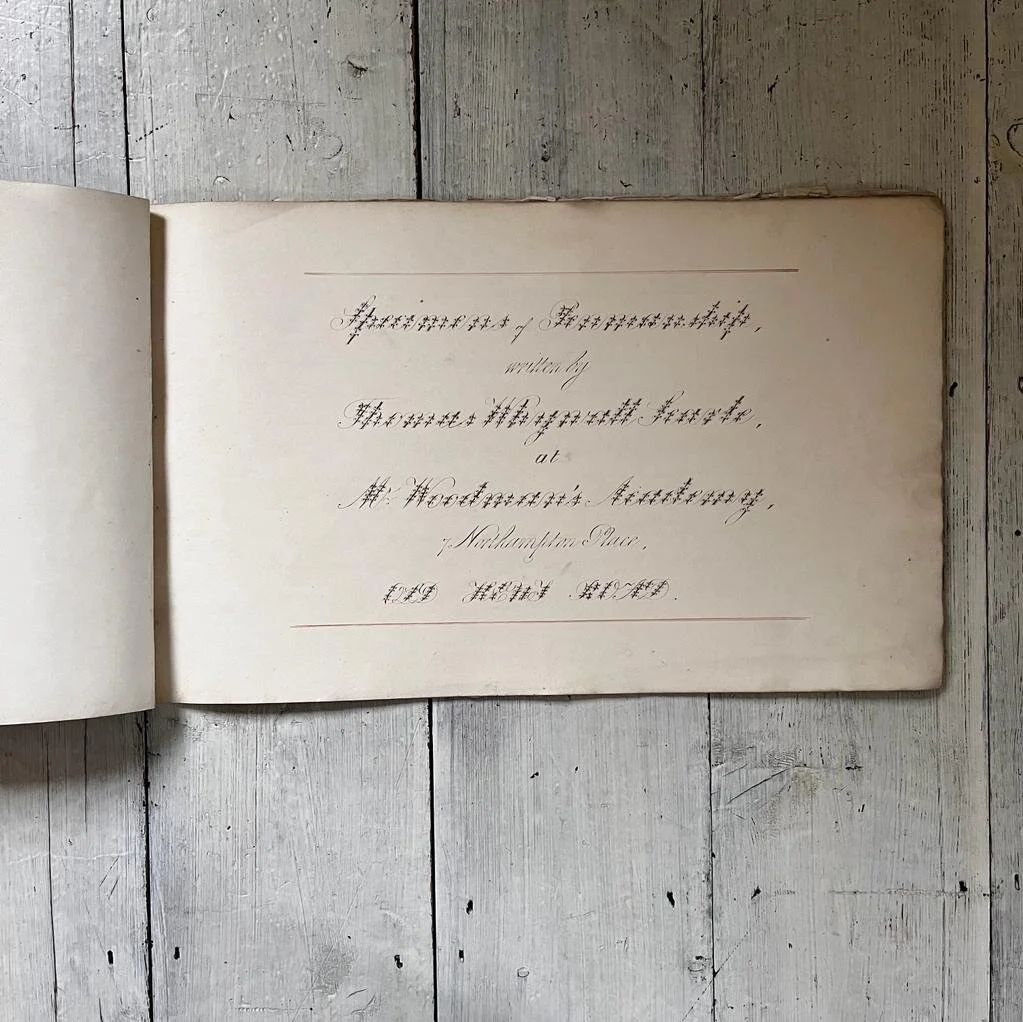 Specimens of Penmanship,
written by
Thomas Whynall Searle,
at
Mr. Woodman's Academy,
7 Northampton Place,
OLD KENT ROAD.